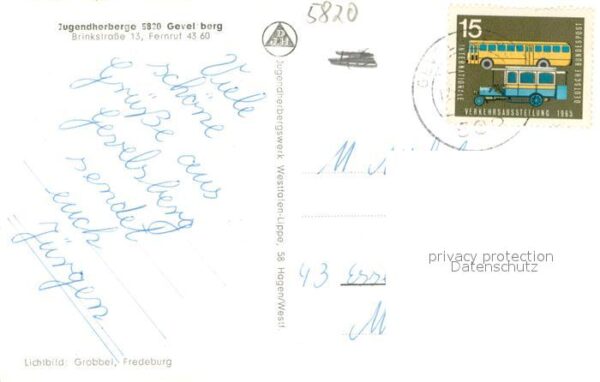 Jugendherberge 5820 Gevelsberg
Brinkstraße 13, Fernruf 43 60
Viele
schöne
Grüße aus
Gevelsberg
sendet
euch
Jürgen
Lichtbild: Grobbel, Fredeburg
Jugendherbergswerk Westfalen-Lippe, 58 Hagen/Westf
5820
15
DEUTSCHE BUNDESPOST
INTERNATIONALE
VERKERSAUSSTELLUNG 1965
M
43 Ess
M
privacy protection
Datenschutz